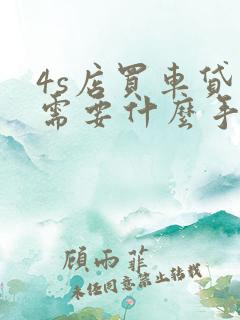 4s店買車貸
需要什麼手
顧雨菲
未经同意禁止转载